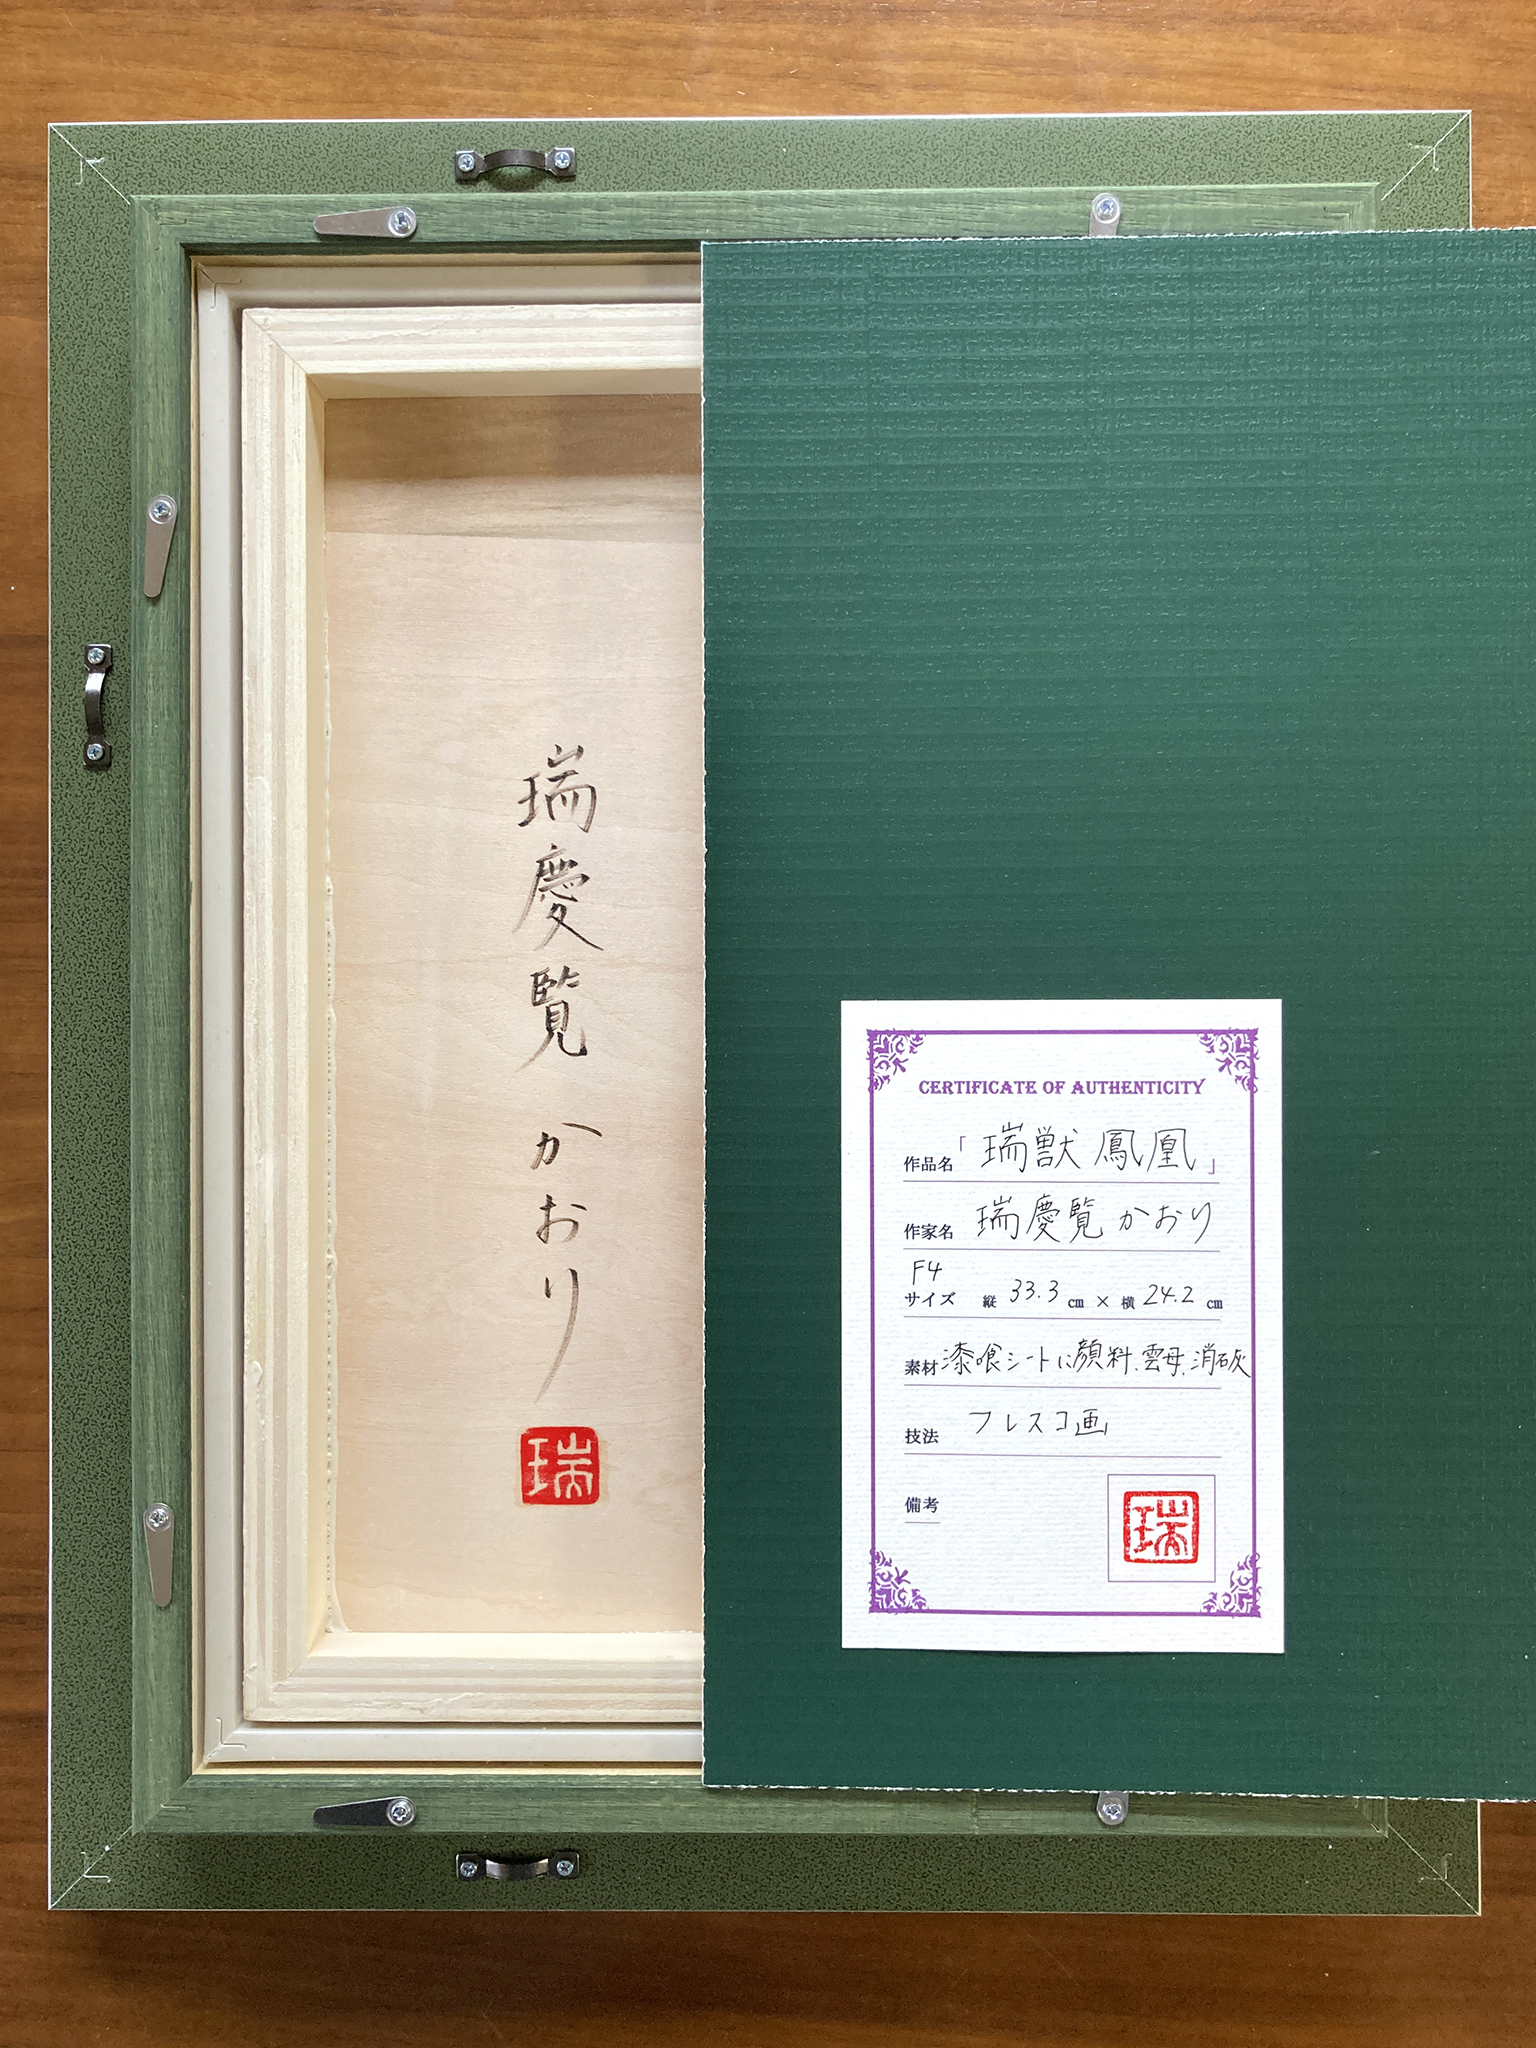 瑞慶覧かおり
瑞
CERTIFICATE OF AUTHENTICITY
作品名「瑞獣 鳳凰」
作家名 瑞慶覧 かおり
F4
サイズ 縦 33.3 cm × 横 24.2 cm
素材 漆喰シートに顔料、雲母、消石灰
技法 フレスコ画
備考
瑞